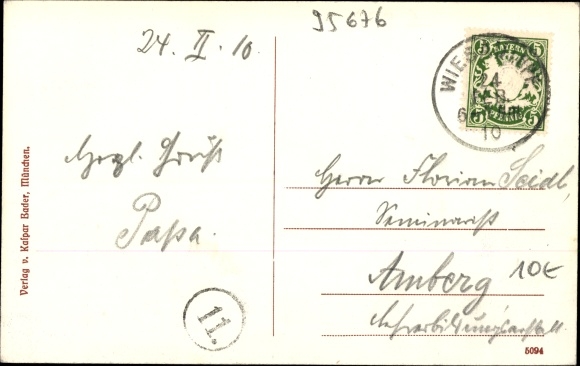 95676
24. II. 10
BAYERN
5 5
5 5
24
10
Herzl. Gruß
Papa.
Herrn Florian Seidl,
Seminarist
Amberg
Lehrerbildungsanstalt.
10€
11.
Verlag v. Kaspar Bader, München.
5094